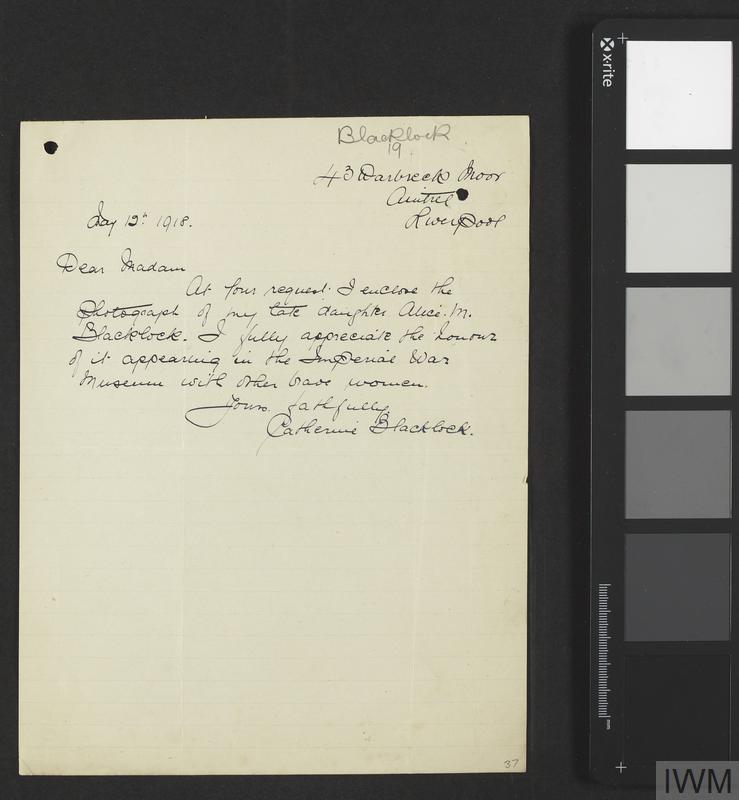 Blacklock
19
43 Warbreck Moor
Aintree
Liverpool
May 12th 1918.
Dear Madam
At your request I enclose the
photograph of my late daughter Alice. M.
Blacklock. I fully appreciate the honour
of it appearing in the Imperial War
Museum with other brave women.
Yours. faithfully
Catherine Blacklock.
37
x-rite
mm
IWM